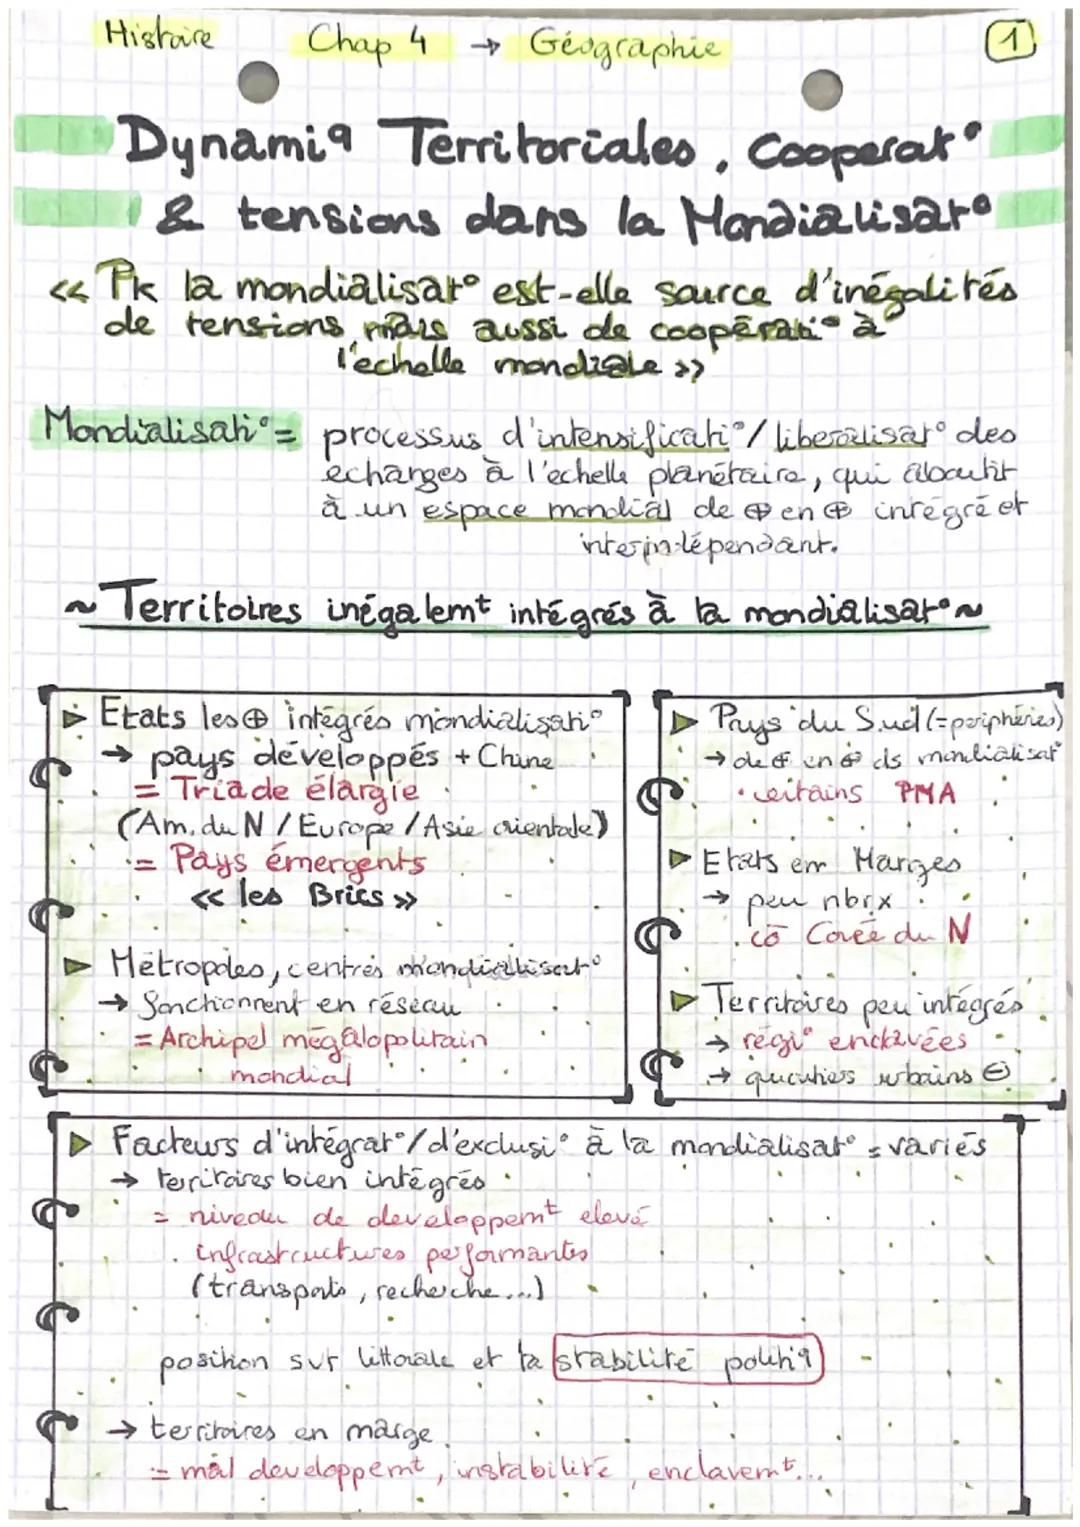 Histoire Chap 4 → Géographie 1
Dynamiq Territoriales, Cooperat°
& tensions dans la Mondialisat°
« Pk la mondialisat° est-elle source d'inégalités
de tensions mais aussi de coopérati° à
l'echelle mondiale »
Mondialisati° = processus d'intensificati°/liberalisat° des
echanges à l'echelle planétaire, qui aboutit
à un espace mondial de ⊕ en ⊕ intégré et
interindépendant.
~ Territoires inégalemt intégrés à la mondialisat° ~
▷ Etats les ⊕ intégrés mondialisati°
→ pays développés + Chine
= Triade élargie
(Am. du N / Europe / Asie orientale)
= Pays émergents
« les Brics »
▷ Métropoles, centres mondialisat°
→ fonctionnent en réseau
= Archipel mégalopolitain
mondial
▷ Pays du Sud (= periphéries)
→ de ⊕ en ⊕ ds mondialisat°
• certains PMA
▷ Etats en Marges
→ peu nbrx
. cō Corée du N
▷ Territoires peu intégrés
→ régi° enclavées
→ quartiers urbains ⊖
▷ Facteurs d'intégrat°/d'exclusi° à la mondialisat° = variés
→ territoires bien intégrés
= niveau de developpemt elevé
. infrastructures performantes
(transports, recherche...)
position sur littorale et la stabilité politiq
→ territoires en marge
= mal developpemt, instabilité, enclavemt...